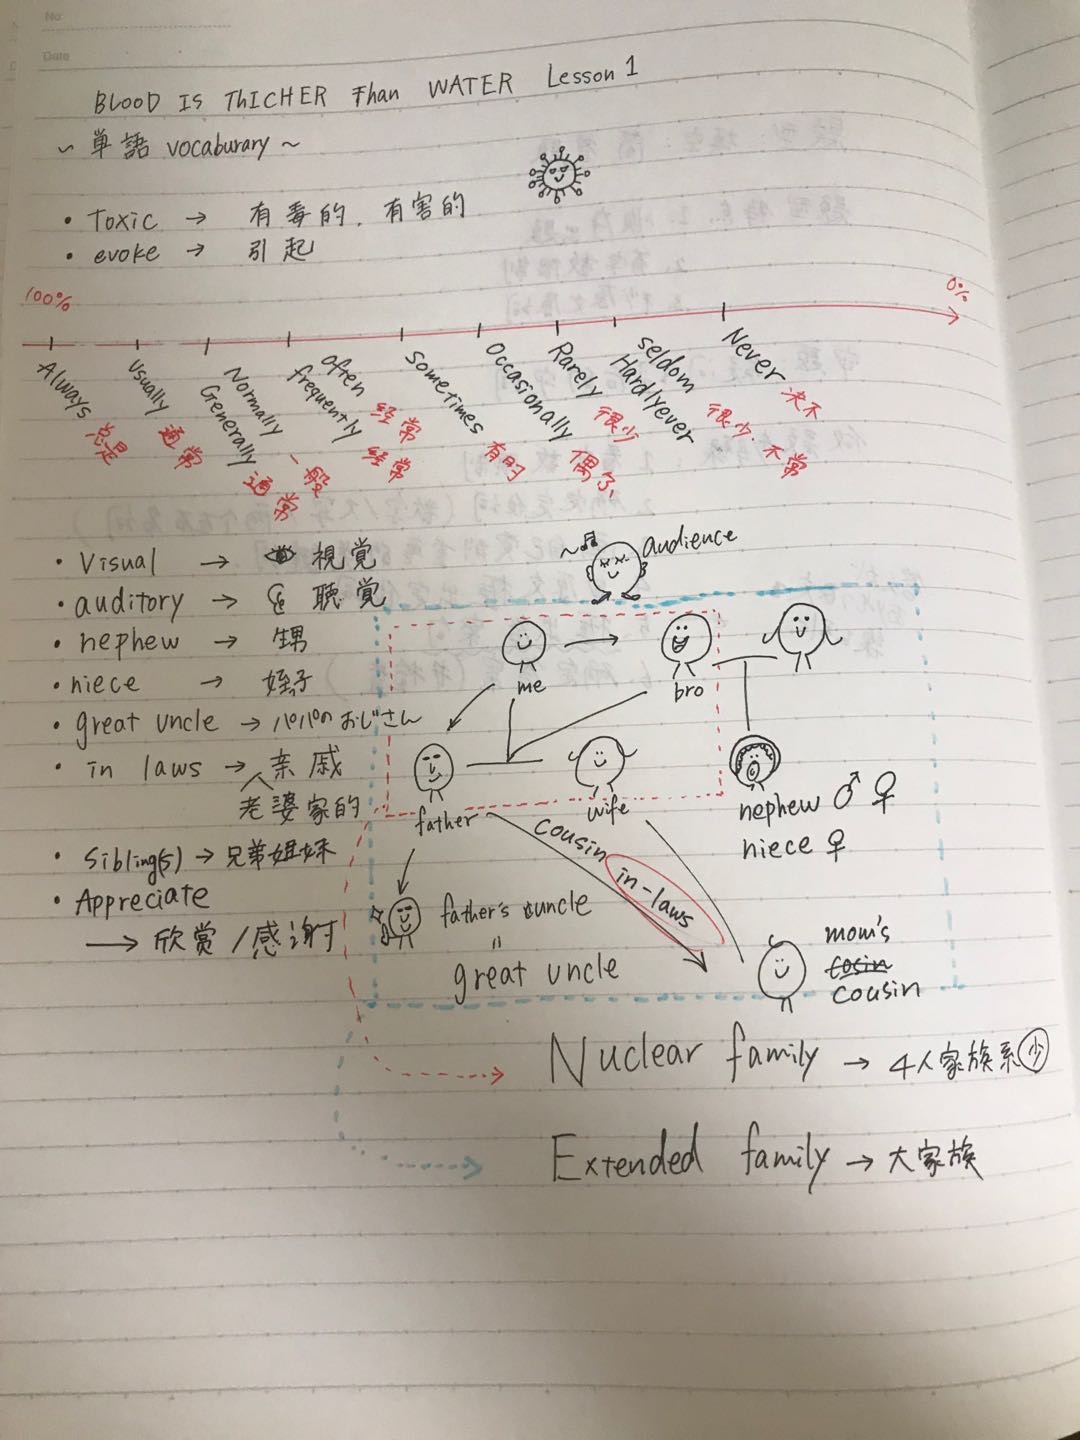 No.
Date
BLOOD IS ThICHER Than WATER Lesson 1
~ 単語 vocaburary ~
• Toxic → 有毒的, 有害的
• evoke → 引起
100% 0%
Always 总是
usually 通常
Normally 一般
Generally 通常
often 经常
frequently 经常
Sometimes 有时
Occasionally 偶尔
Rarely 很少
seldom 很少
Hardlyever 不常
Never 决不
• Visual → 視覚
• auditory → 聴覚
audience
• nephew → 甥
• niece → 姪子
• great uncle → パパのおじさん
• in laws → 亲戚
老婆家的
• Sibling(s) → 兄弟姐妹
• Appreciate
→ 欣赏 / 感谢
me
bro
father
wife
nephew ♂ ♀
niece ♀
cousin
in-laws
father's uncle
=
great uncle
mom's
cosin
cousin
Nuclear family → 4人家族系 少
Extended family → 大家族